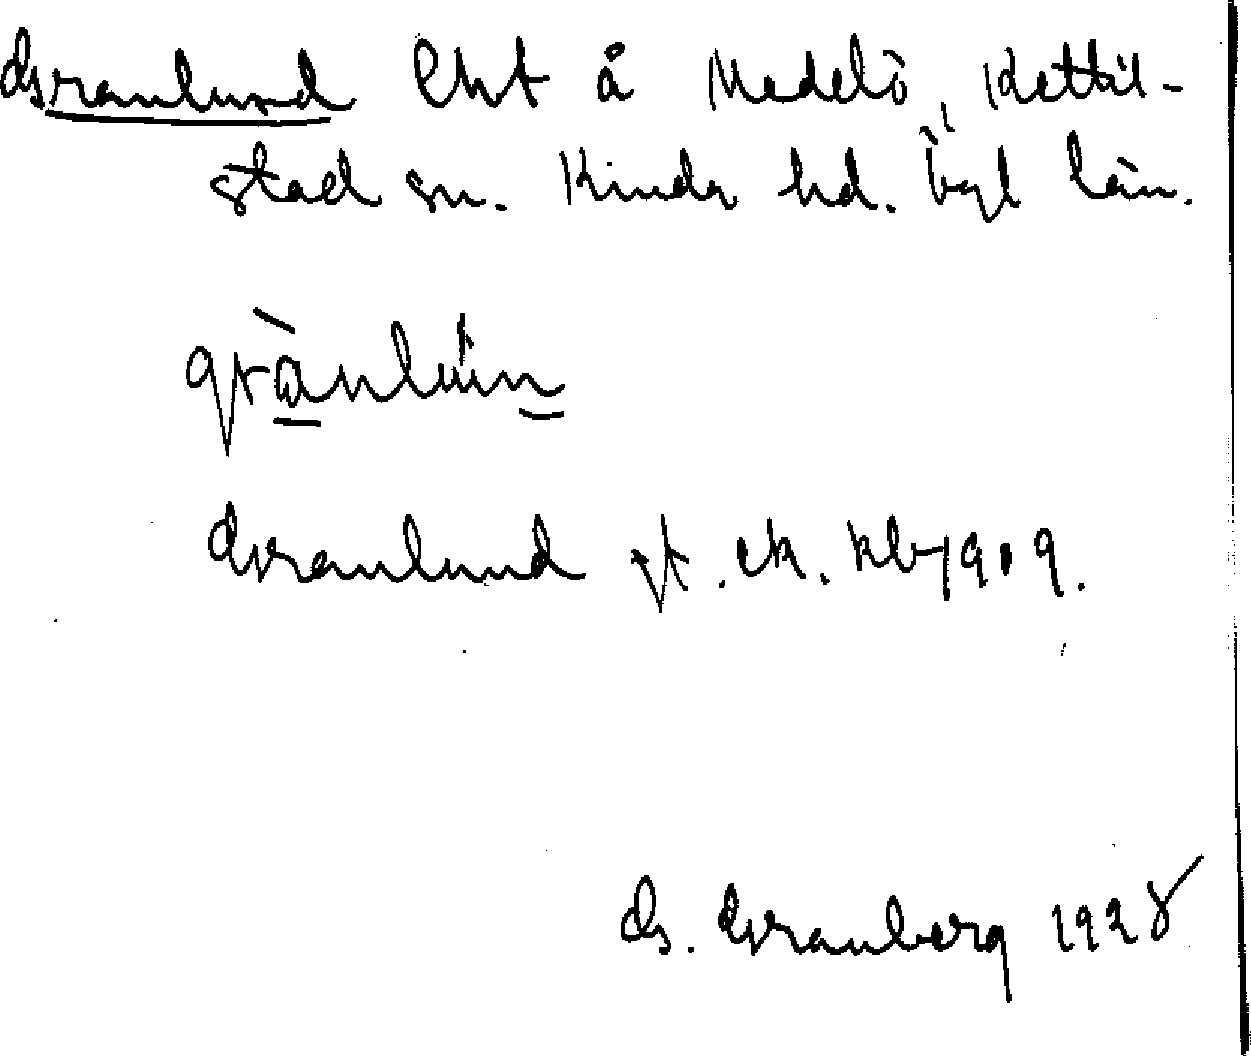 Granlund lht å Medelö, Kettil-
stad sn. Kinda hd. Ögl län.
grànlún
Granlund jt. ek. klby 1909.
G. Granberg 1928